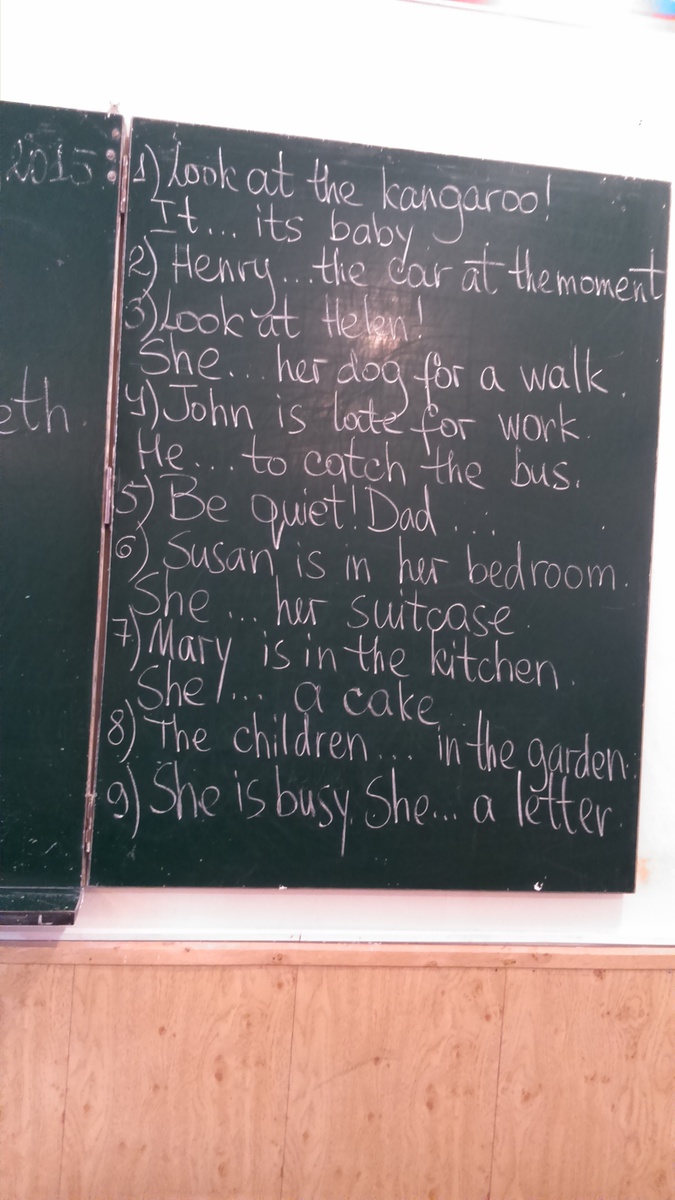 2015
eth.
1) Look at the kangaroo!
It... its baby
2) Henry...the car at the moment
3) Look at Helen!
She... her dog for a walk.
4) John is late for work.
He... to catch the bus.
5) Be quiet! Dad ...
6) Susan is in her bedroom.
She ... her suitcase.
7) Mary is in the kitchen.
She ... a cake
8) The children... in the garden.
9) She is busy. She... a letter.